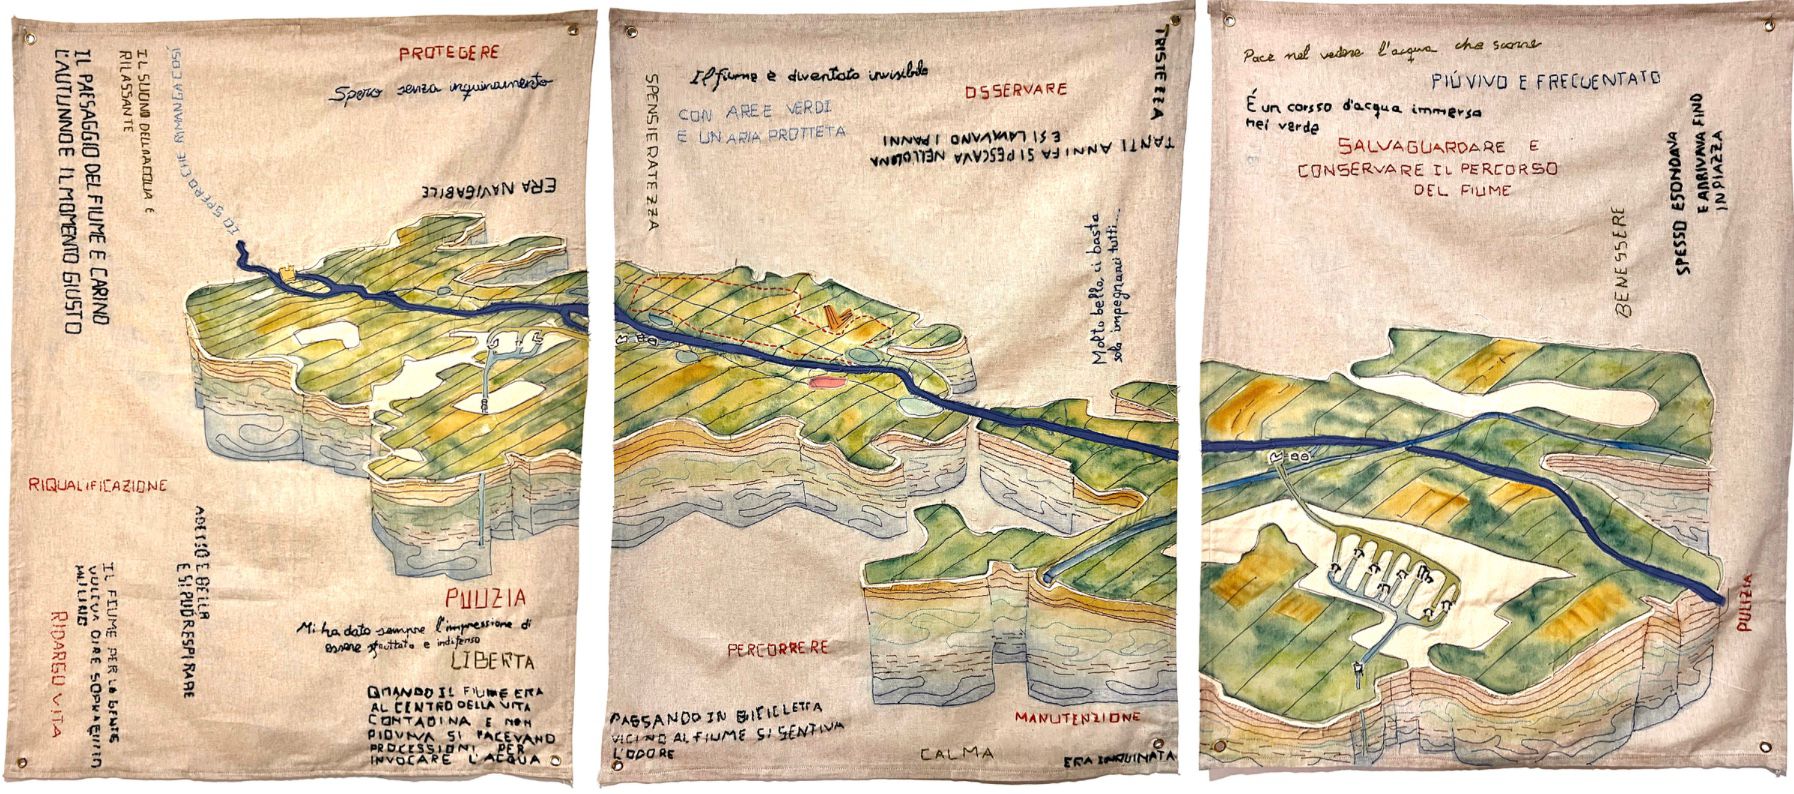 PROTEGERE
Spero senza inquinamento
IL PAESAGGIO DEL FIUME E CARINO
L'AUTUNNO E IL MOMENTO GIUSTO
IL SUONO DELL'ACQUA E
RILASSANTE
IO SPERO CHE RIMANGA COSÌ
ERA NAVIGABILE
RIQUALIFICAZIONE
ADESSO E BELLA
E SI PUÒ RESPIRARE
IL FIUME PER LA GENTE
VOLEVA DIRE SOPRA
MULINI
RIDARGLI VITA
PULIZIA
Mi ha dato sempre l'impressione di
essere sfruttato e indifeso
LIBERTA
QUANDO IL FIUME ERA
AL CENTRO DELLA VITA
CONTADINA E NON
PIOVEVA SI FACEVANO
PROCESSIONI PER
INVOCARE L'ACQUA
TRISTEZZA
Il fiume è diventato invisibile
OSSERVARE
SPENSIERATEZZA
CON AREE VERDI
E UN ARIA PROTTETA
TANTI ANNI FA SI PESCAVA NELL'OLONA
E SI LAVAVANO I PANNI
Molto bello, ci basta
solo impegnarci tutti....
PERCORRERE
PASSANDO IN BICICLETTA
VICINO AL FIUME SI SENTIVA
L'ODORE
MANUTENZIONE
CALMA
ERA INQUINATA
Pace nel vedere l'acqua che scorre
PIÚ VIVO E FREQUENTATO
É un corsso d'acqua immerso
nei verde
SALVAGUARDARE E
CONSERVARE IL PERCORSO
DEL FIUME
BENESSERE
SPESSO ESONDAVA
E ARRIVAVA FINO
IN PIAZZA
PULIZIA